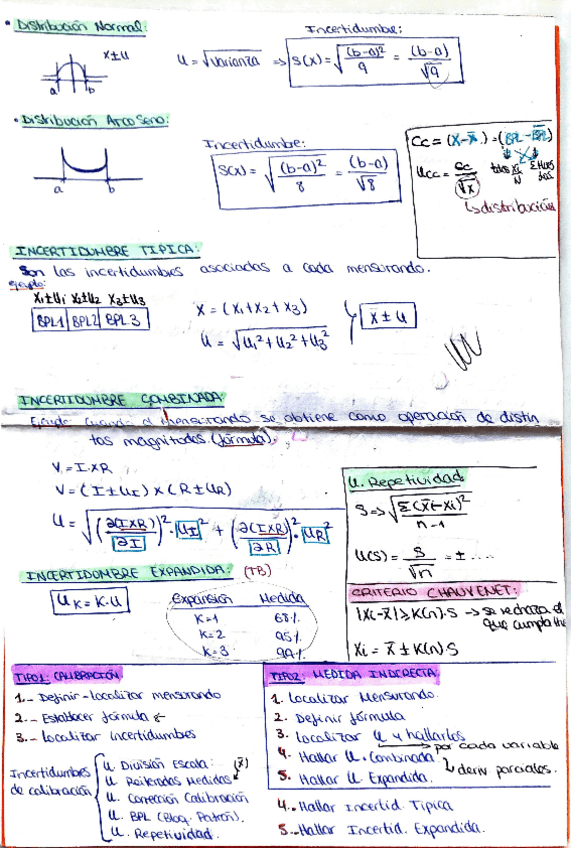 • Distribución Normal:
Incertidumbre:
x±u
a b
u = √varianza ⇒ S(x) = √((b-a)²/9) = (b-a)/√9
• Distribución Arco Seno:
Incertidumbre:
a b
S(x) = √((b-a)²/8) = (b-a)/√8
Cc = (x-x̄.) = (BPL - BPL)
Ucc = Cc/√x
↳ distribución
INCERTIDUMBRE TIPICA:
Son las incertidumbres asociadas a cada mensurando.
ejemplo:
x₁±u₁ x₂±u₂ x₃±u₃
BPL1 BPL2 BPL3
x = (x₁+x₂+x₃)
u = √(u₁²+u₂²+u₃²)
x ± u
INCERTIDUMBRE COMBINADA
cuando el mensurando se obtiene como operación de distin
tas magnitudes.(fórmula).
V = I x R
V = (I ± uI) x (R ± uR)
u = √((∂(IxR)/∂I)² · |uI|² + (∂(IxR)/∂R)² · |uR|²)
U. Repetividad
S => √(Σ(x̄-xi)²/n-1)
u(s) = S/√n = ± ....
INCERTIDUMBRE EXPANDIDA: (TB)
Uk = K·u
Expansión Medida
K=1 68%
K=2 95%
K=3 99%
CRITERIO CHAUVENET:
|xi-x̄| ≥ K(n)·S → se rechaza el
que cumpla the
xi = x̄ ± K(n)·S
TIPO1: CALIBRACIÓN
1.- Definir-localizar mensurando
2.- Establecer fórmula
3.- Localizar incertidumbres
Incertidumbres de calibración
u División Escala: (x̄)
u. Reiteradas Medidas
u. Corrección Calibración
u. BPL (Bloq. Patrón).
u. Repetividad.
TIPO2: MEDIDA INDIRECTA
1. Localizar Mensurando
2. Definir fórmula
3. Localizar u y hallarlos → por cada variable
4. Hallar U. Combinada ↳ deriv parciales.
5. Hallar U Expandida.
4.- Hallar Incertid. Tipica
5.- Hallar Incertid. Expandida.